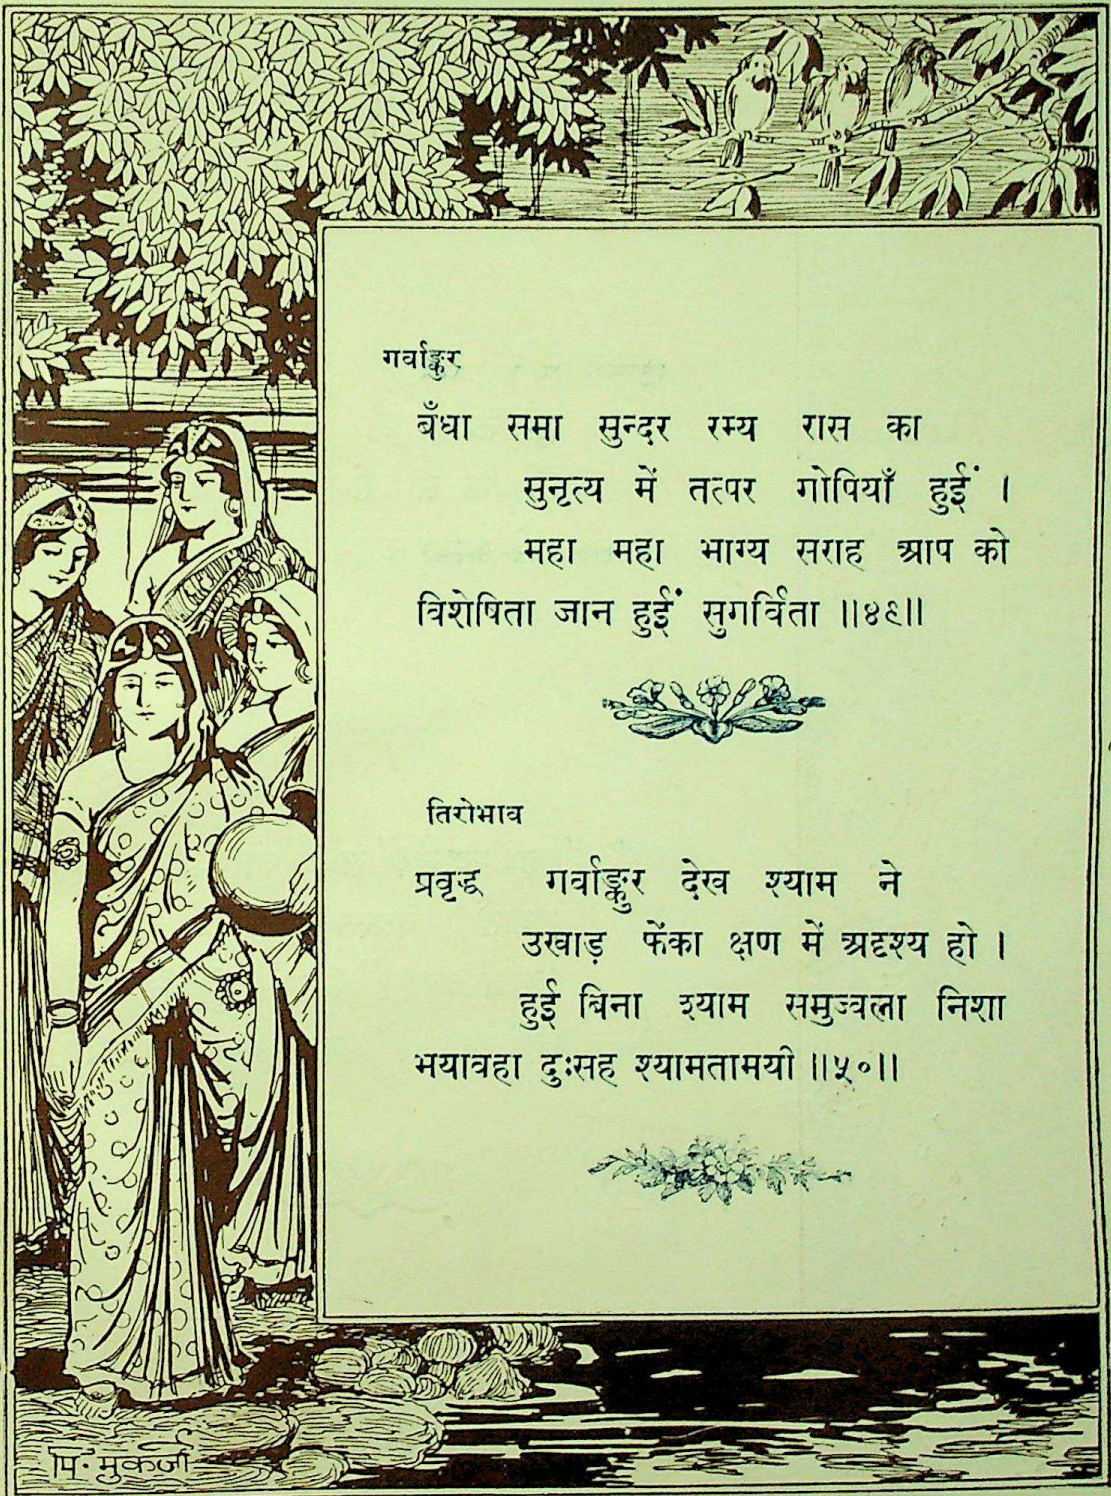 गर्वाङ्कुर
बँधा समा सुन्दर रम्य रास का
सुनृत्य में तत्पर गोपियाँ हुईं ।
महा महा भाग्य सराह आप को
विशेषिता जान हुईं सुगर्विता ॥४९॥
तिरोभाव
प्रवृद्ध गर्वाङ्कुर देख श्याम ने
उखाड़ फेंका क्षण में अदृश्य हो ।
हुई बिना श्याम समुज्वला निशा
भयावहा दुःसह श्यामतामयी ॥५०॥
पि. मुकर्जी